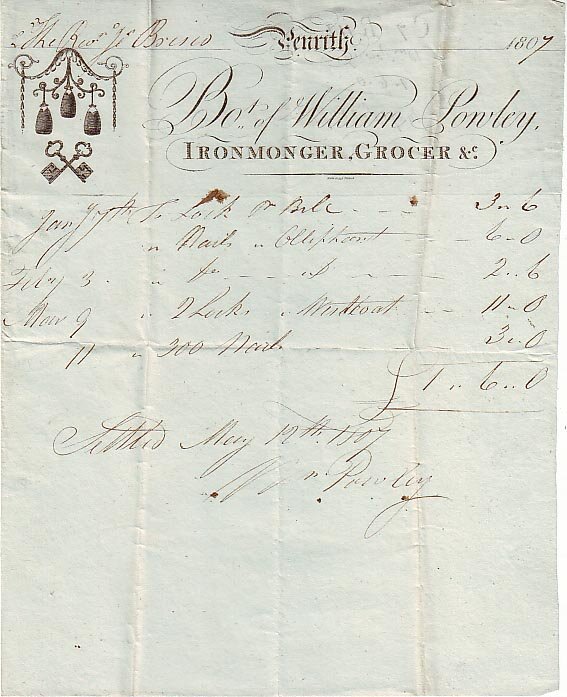 The Revd Jn Brisco Penrith 1807
Bot. of William Powley,
IRONMONGER, GROCER &c.
Jany 7th To Lock & Bell - - 3 " 6
" Nails " Olliphant - 6 " 0
Feby 3 " " - - 2 " 6
Mar 9 " 2 Locks " - - 11 " 0
11 " 300 Nails 3 " 0
£1 " 6 " 0
Settled May 12th 1807
Wm Powley